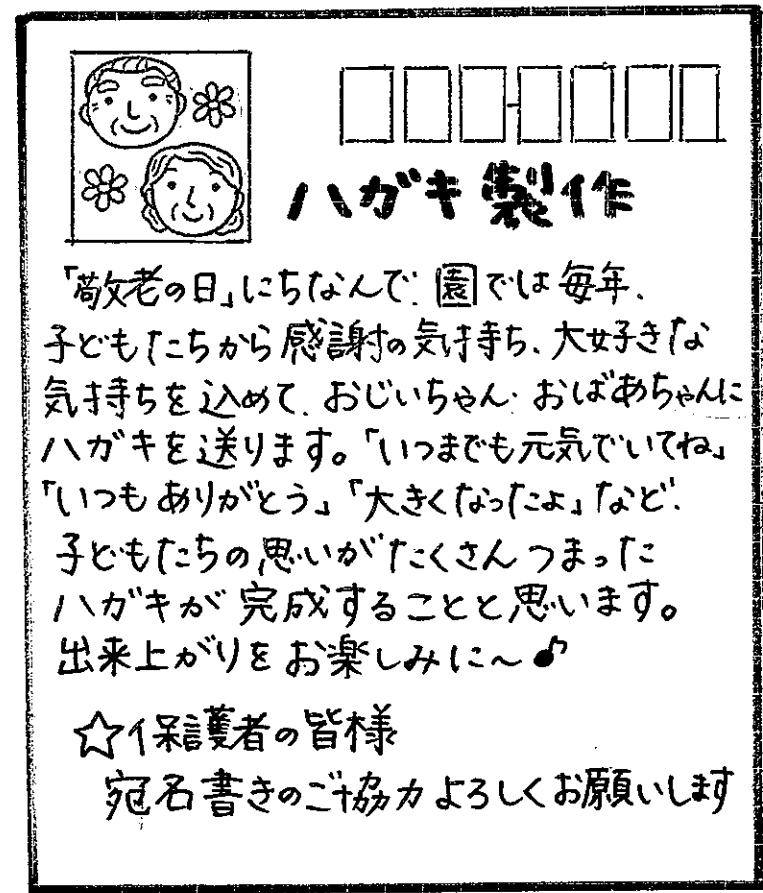 ハガキ製作
「敬老の日」にちなんで、園では毎年、
子どもたちから感謝の気持ち、大好きな
気持ちを込めて、おじいちゃん・おばあちゃんに
ハガキを送ります。「いつまでも元気でいてね」
「いつもありがとう」「大きくなったよ」など、
子どもたちの思いがたくさんつまった
ハガキが完成することと思います。
出来上がりをお楽しみに～♪
☆保護者の皆様
宛名書きのご協力よろしくお願いします